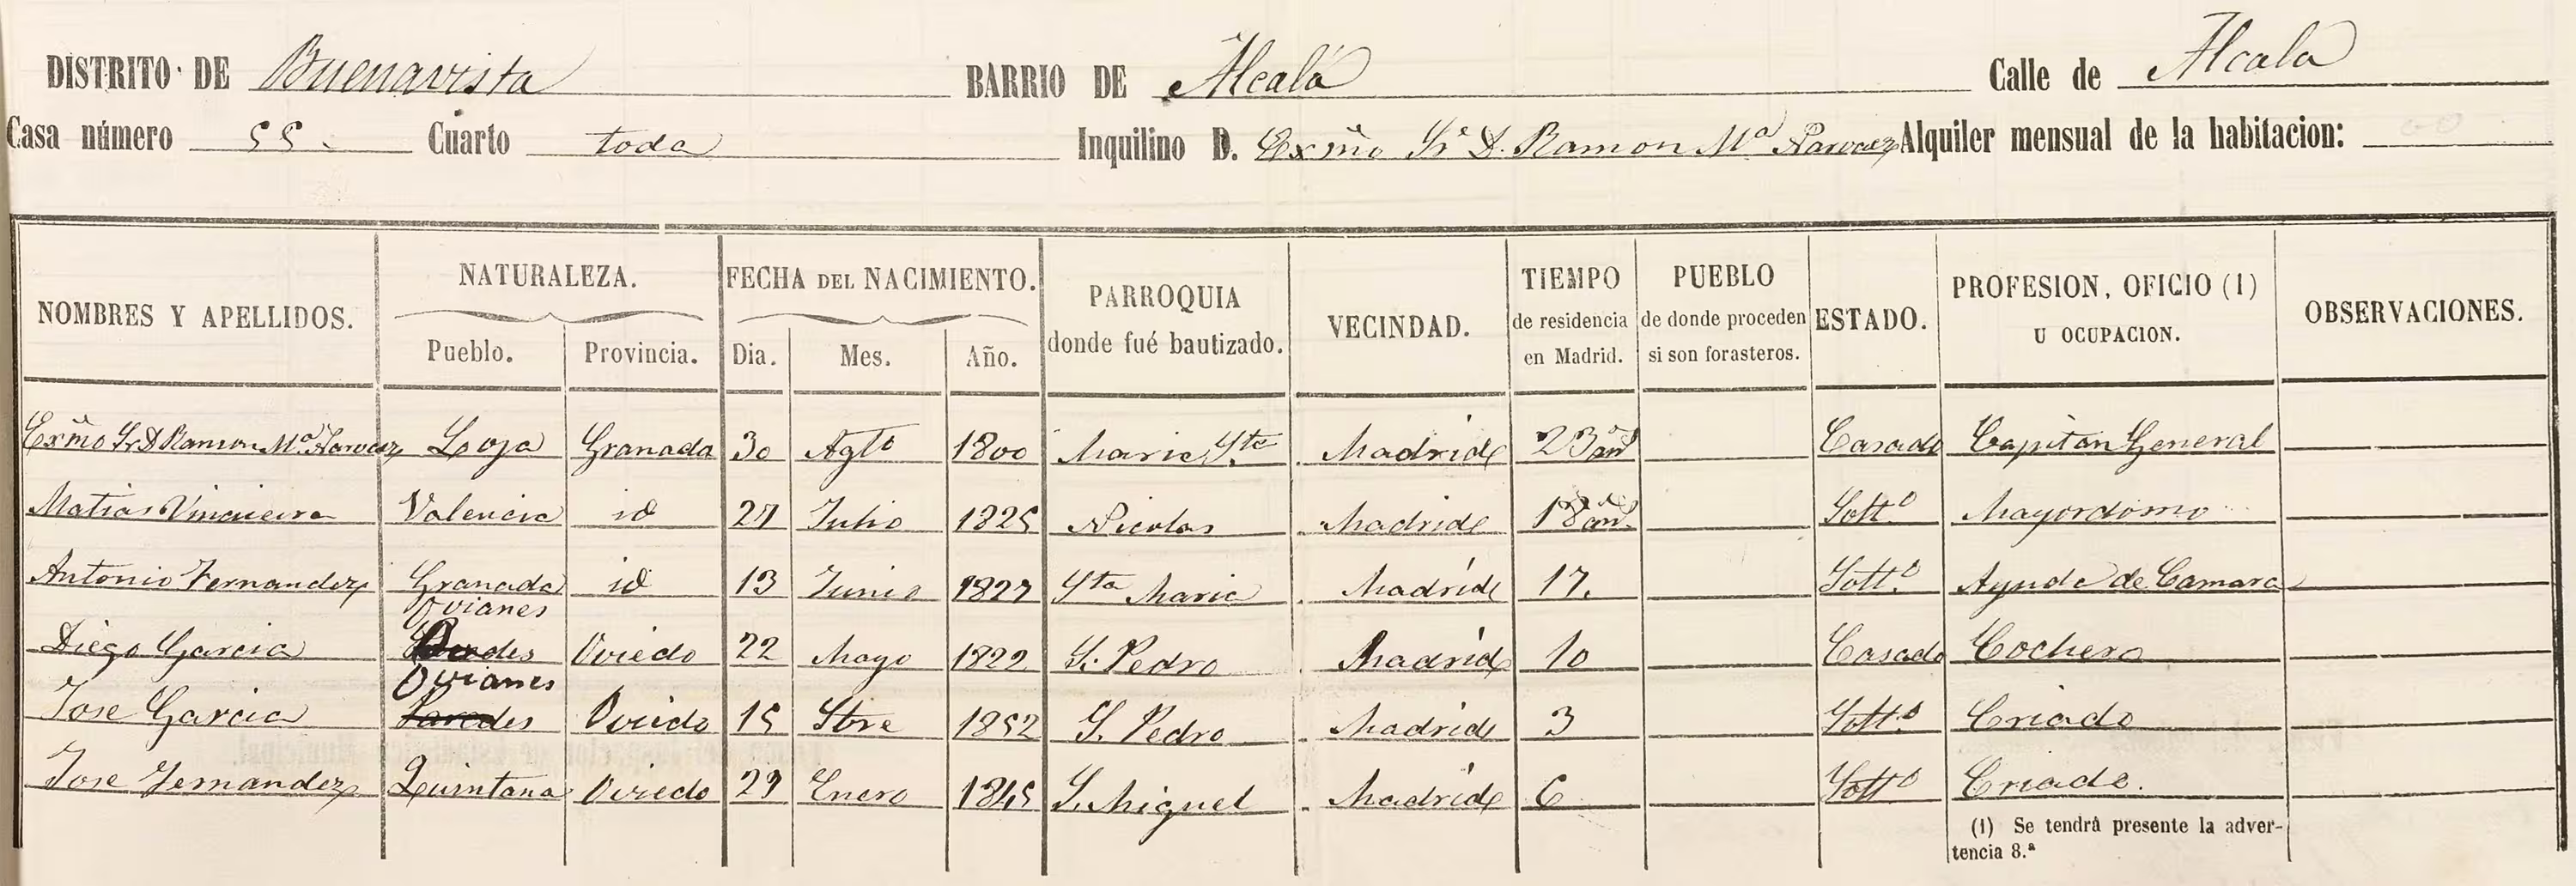 DISTRITO DE Buenavista BARRIO DE Alcalá Calle de Alcala
Casa número 55. Cuarto toda Inquilino D. Exmo Sr D. Ramon Mª Narvaez Alquiler mensual de la habitacion:
NOMBRES Y APELLIDOS. NATURALEZA. Pueblo. Provincia. FECHA DEL NACIMIENTO. Dia. Mes. Año. PARROQUIA donde fué bautizado. VECINDAD. TIEMPO de residencia en Madrid. PUEBLO de donde proceden si son forasteros. ESTADO. PROFESION, OFICIO (1) U OCUPACION. OBSERVACIONES.
Exmo Sr D Ramon Mª Narvaez Loja Granada 30 Agto 1800 Maria Stª Madrid 23 añs Casado Capitan General
Matias Valencia id 27 Julio 1825 Nicolas Madrid 18 añs Solto Mayordomo
Antonio Fernandez Granada id 13 Junio 1827 Sta Maria Madrid 17. Solto Ayuda de Camara
Ovianes
Diego Garcia Oviedo 22 Mayo 1822 S. Pedro Madrid 10 Casado Cochero
Ovianes
Jose Garcia Paredes Oviedo 15 Stbre 1852 S. Pedro Madrid 3 Solto Criado
Jose Fernandez Quintana Oviedo 29 Enero 1845 S. Miguel Madrid 6 Solto Criado.
(1) Se tendrá presente la adver-
tencia 8.ª